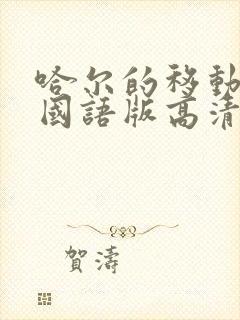 哈尔的移動
國語版高清
賀濤